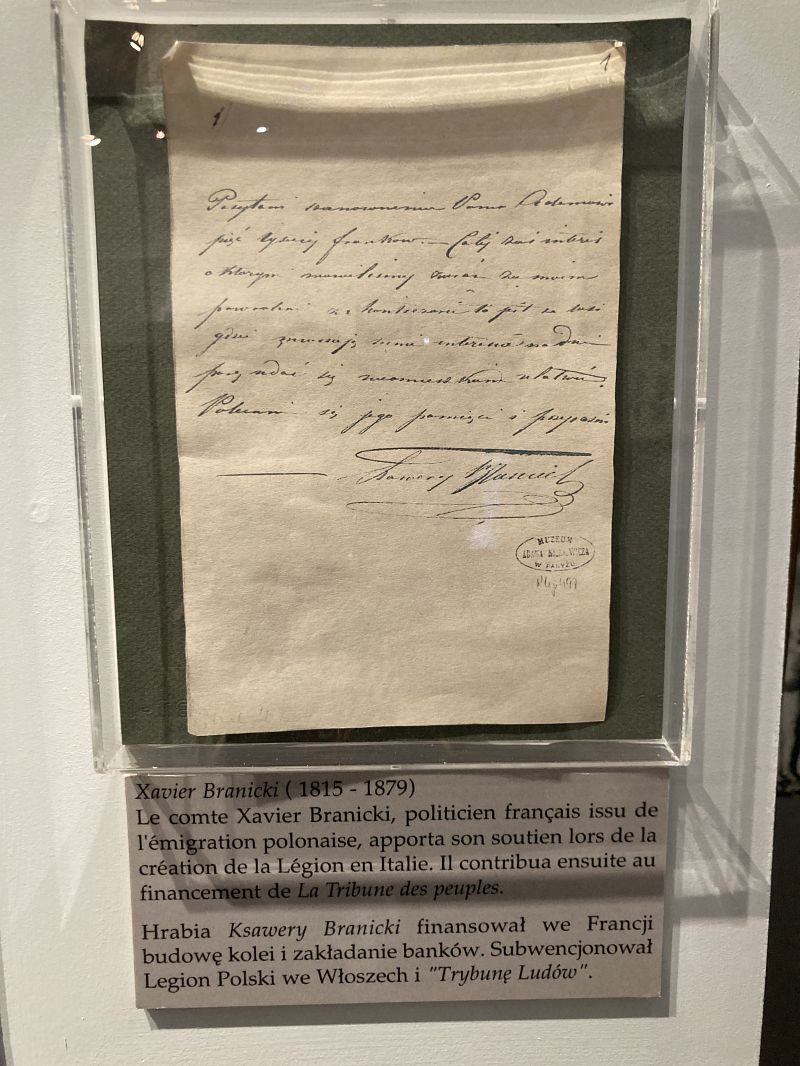 1
1
Posyłam szanownemu Panu Adamowi
pięć tysięcy franków. — Cały zaś interes
o którym mówiliśmy zaraz za moim
powrotem
gdzie
się
Polecam się jego pamięci i
Xawery Branicki
MUZEUM
ADAMA MICKIEWICZA
W PARYŻU
Xavier Branicki ( 1815 - 1879)
Le comte Xavier Branicki, politicien français issu de
l'émigration polonaise, apporta son soutien lors de la
création de la Légion en Italie. Il contribua ensuite au
financement de La Tribune des peuples.
Hrabia Ksawery Branicki finansował we Francji
budowę kolei i zakładanie banków. Subwencjonował
Legion Polski we Włoszech i "Trybunę Ludów".